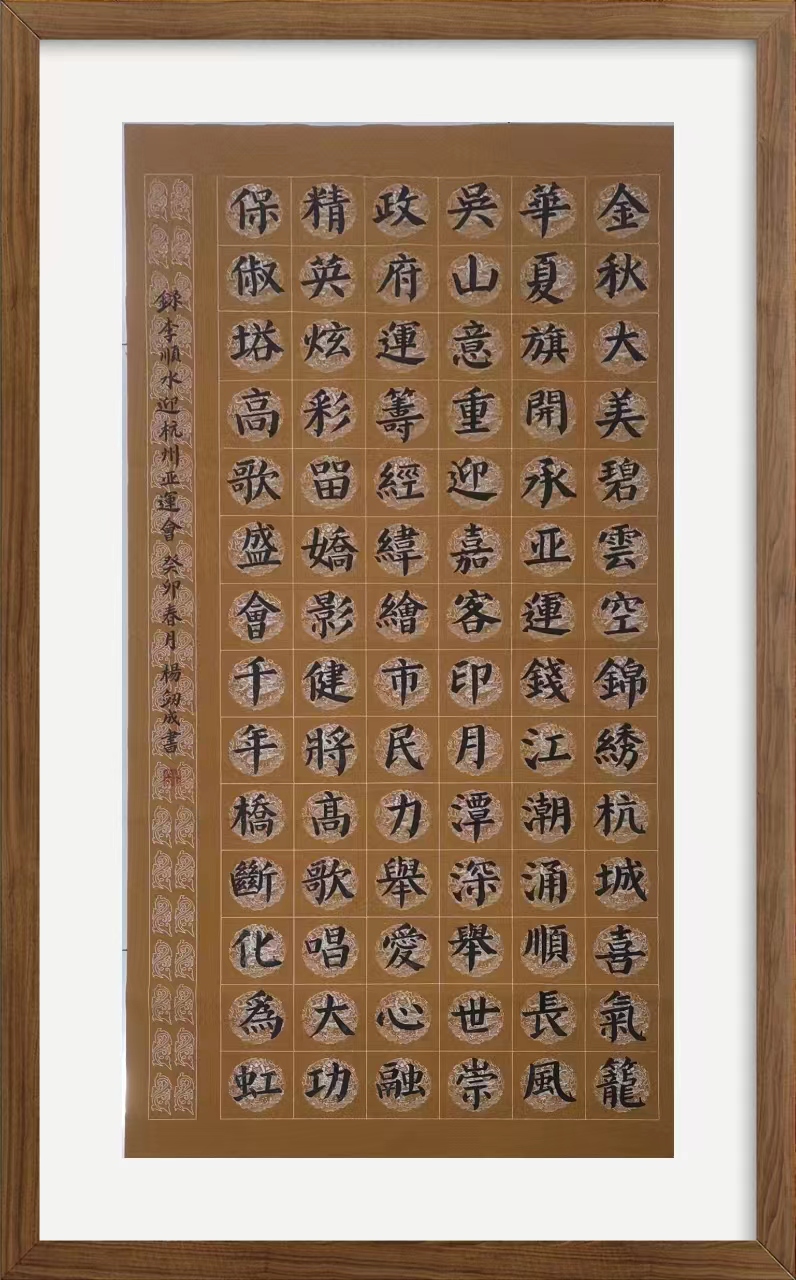 金秋大美碧雲空錦綉杭城喜氣籠
華夏旗開承亚運錢江潮涌順長風
吳山意重迎嘉客印月潭深舉世崇
政府運籌經緯繪市民力舉愛心融
精英炫彩留嬌影健將高歌唱大功
保俶塔高歌盛會千年橋斷化為虹
錄李順水迎杭州亚運會 癸卯春月 楊 成書